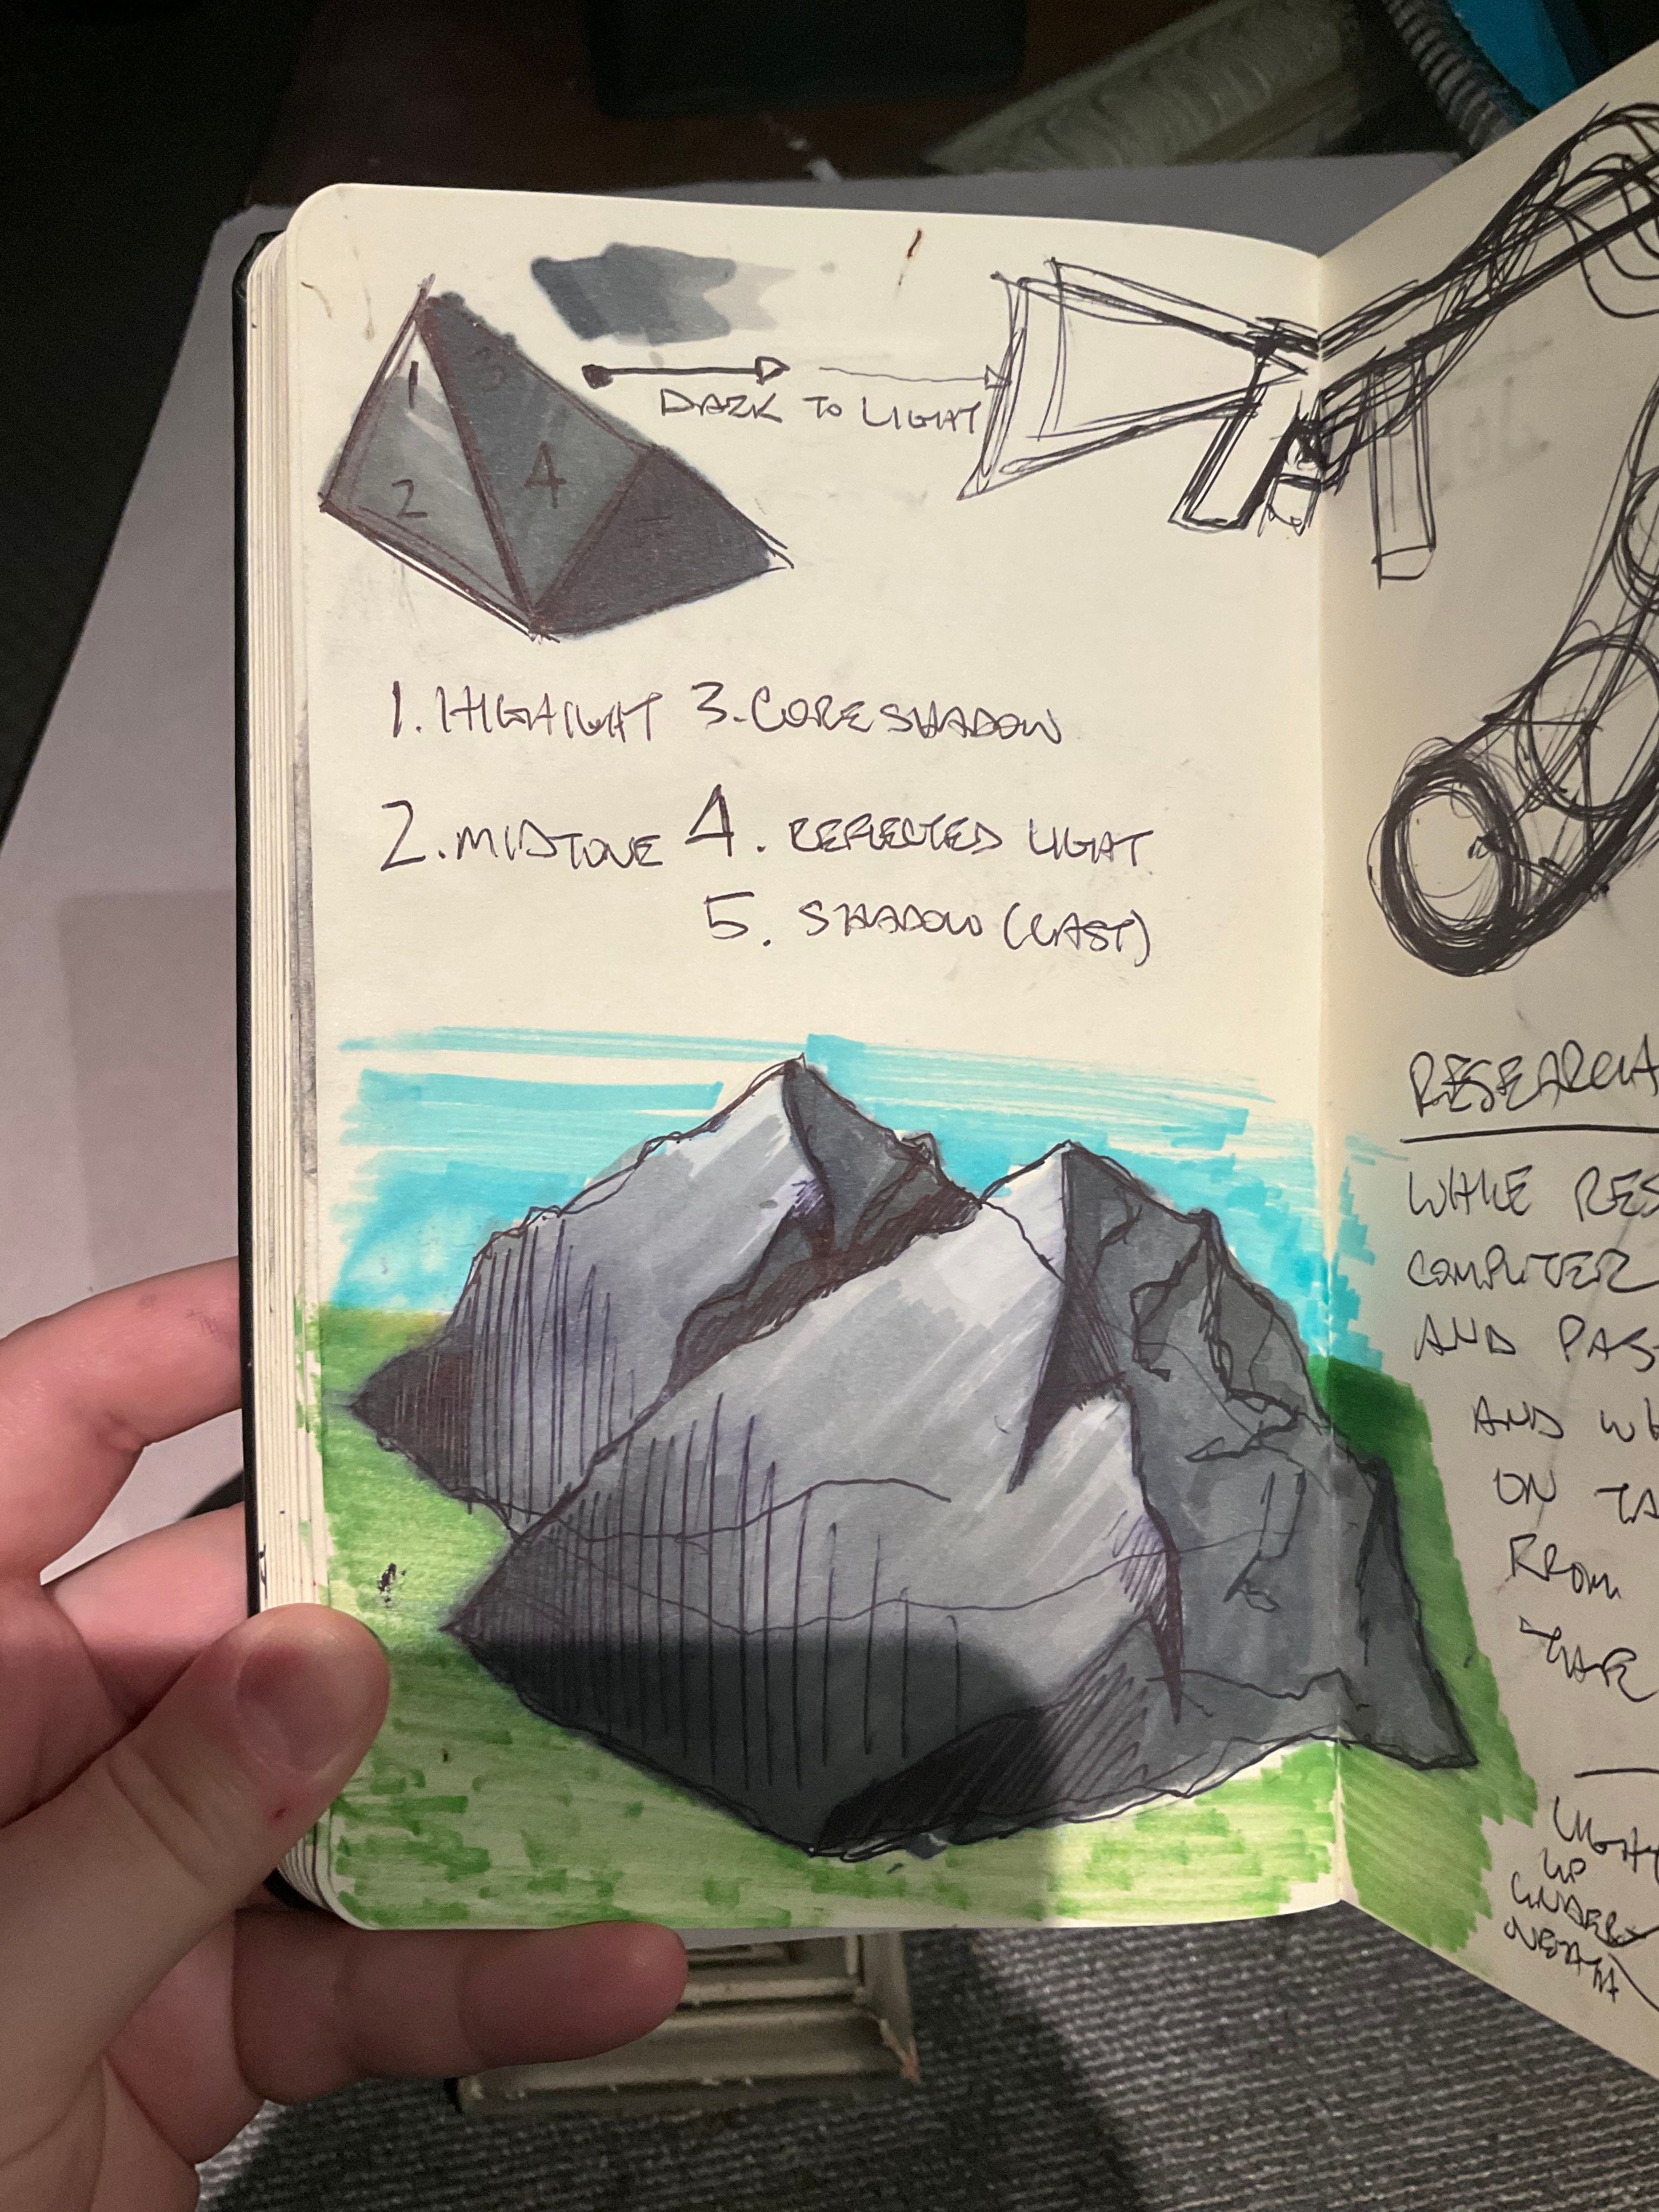 1
3
2
4
DARK TO LIGHT
1. HIGHLIGHT 3. CORE SHADOW
2. MIDTONE 4. REFLECTED LIGHT
5. SHADOW (CAST)
RESEARCH
WHILE RES
COMPUTER
AND PAS
AND WH
ON TA
FROM
LIGHT
UP
UNDER
NEATH